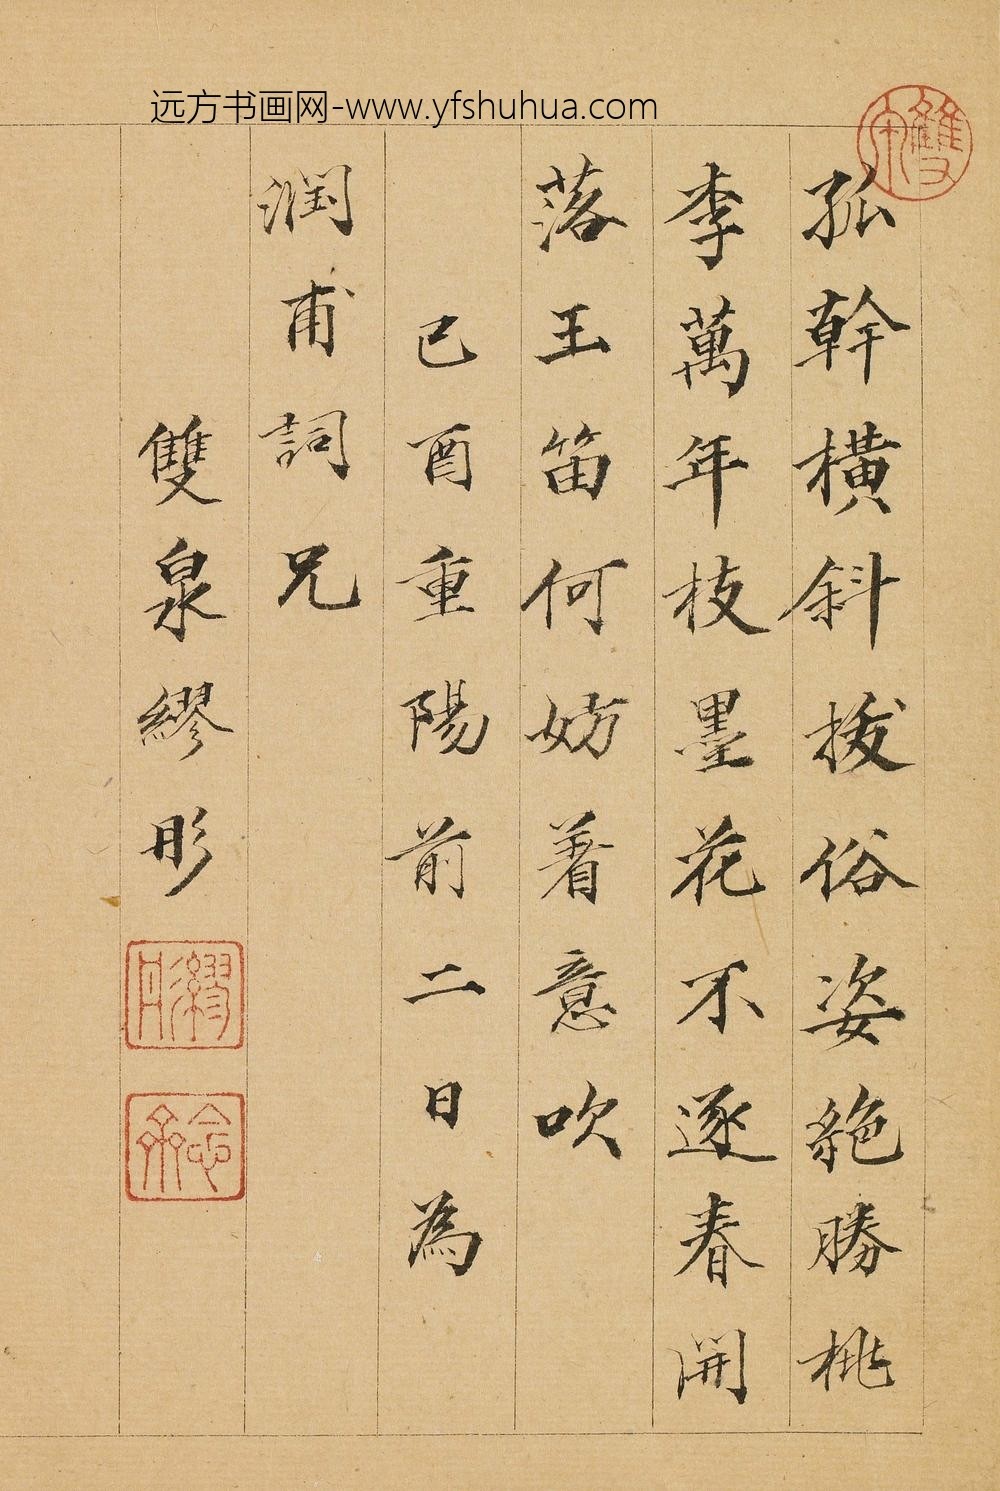 远方书画网-www.yfshuhua.com
孤幹橫斜拔俗姿絶勝桃
李萬年枝墨花不逐春開
落玉笛何妨着意吹
己酉重陽前二日為
潤甫詞兄
雙泉繆彤